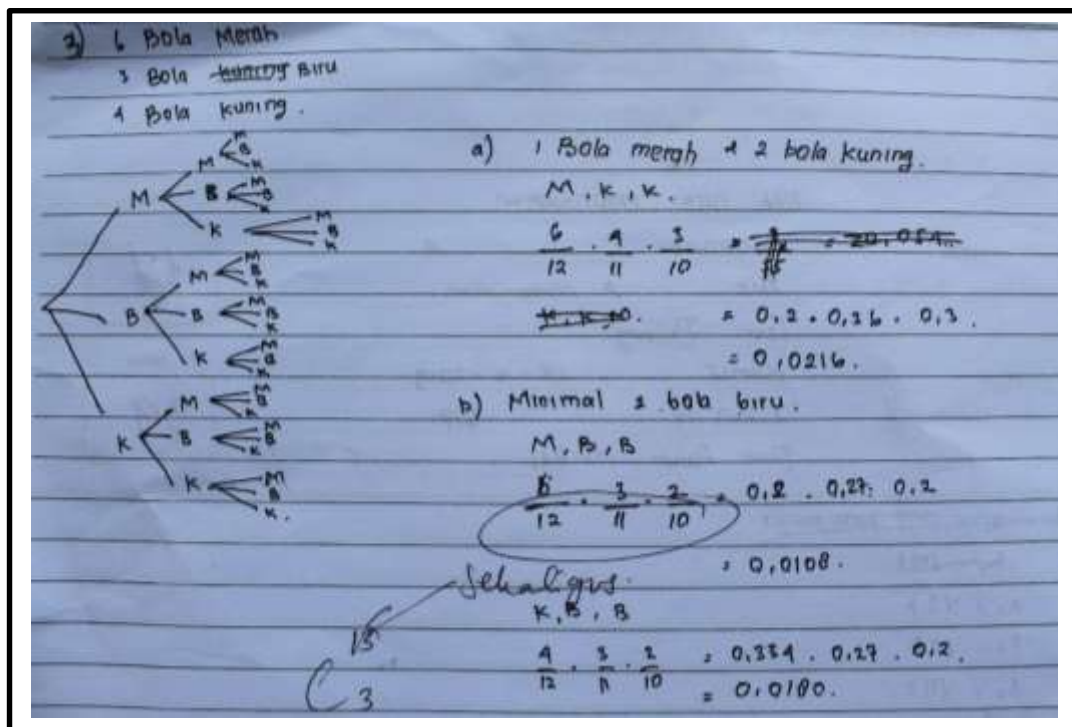 3) 6 Bola Merah
3 Bola kuning Biru
4 Bola kuning.
M M M B K
B M B K
K M B K
B M M B K
B M B K
K M B K
K M M B
B M B K
K M B K.
a) 1 Bola merah & 2 bola kuning.
M, K, K.
6/12 . 4/11 . 3/10 =
= 0,2 . 0,36 . 0,3.
= 0,0216.
b) Minimal 2 bola biru.
M, B, B
6/12 . 3/11 . 2/10 = 0,2 . 0,27. 0,2
= 0,0108.
Sekaligus.
K, B, B
C 15 3
4/12 . 3/11 . 2/10 = 0,334 . 0,27 . 0,2.
= 0,0180.